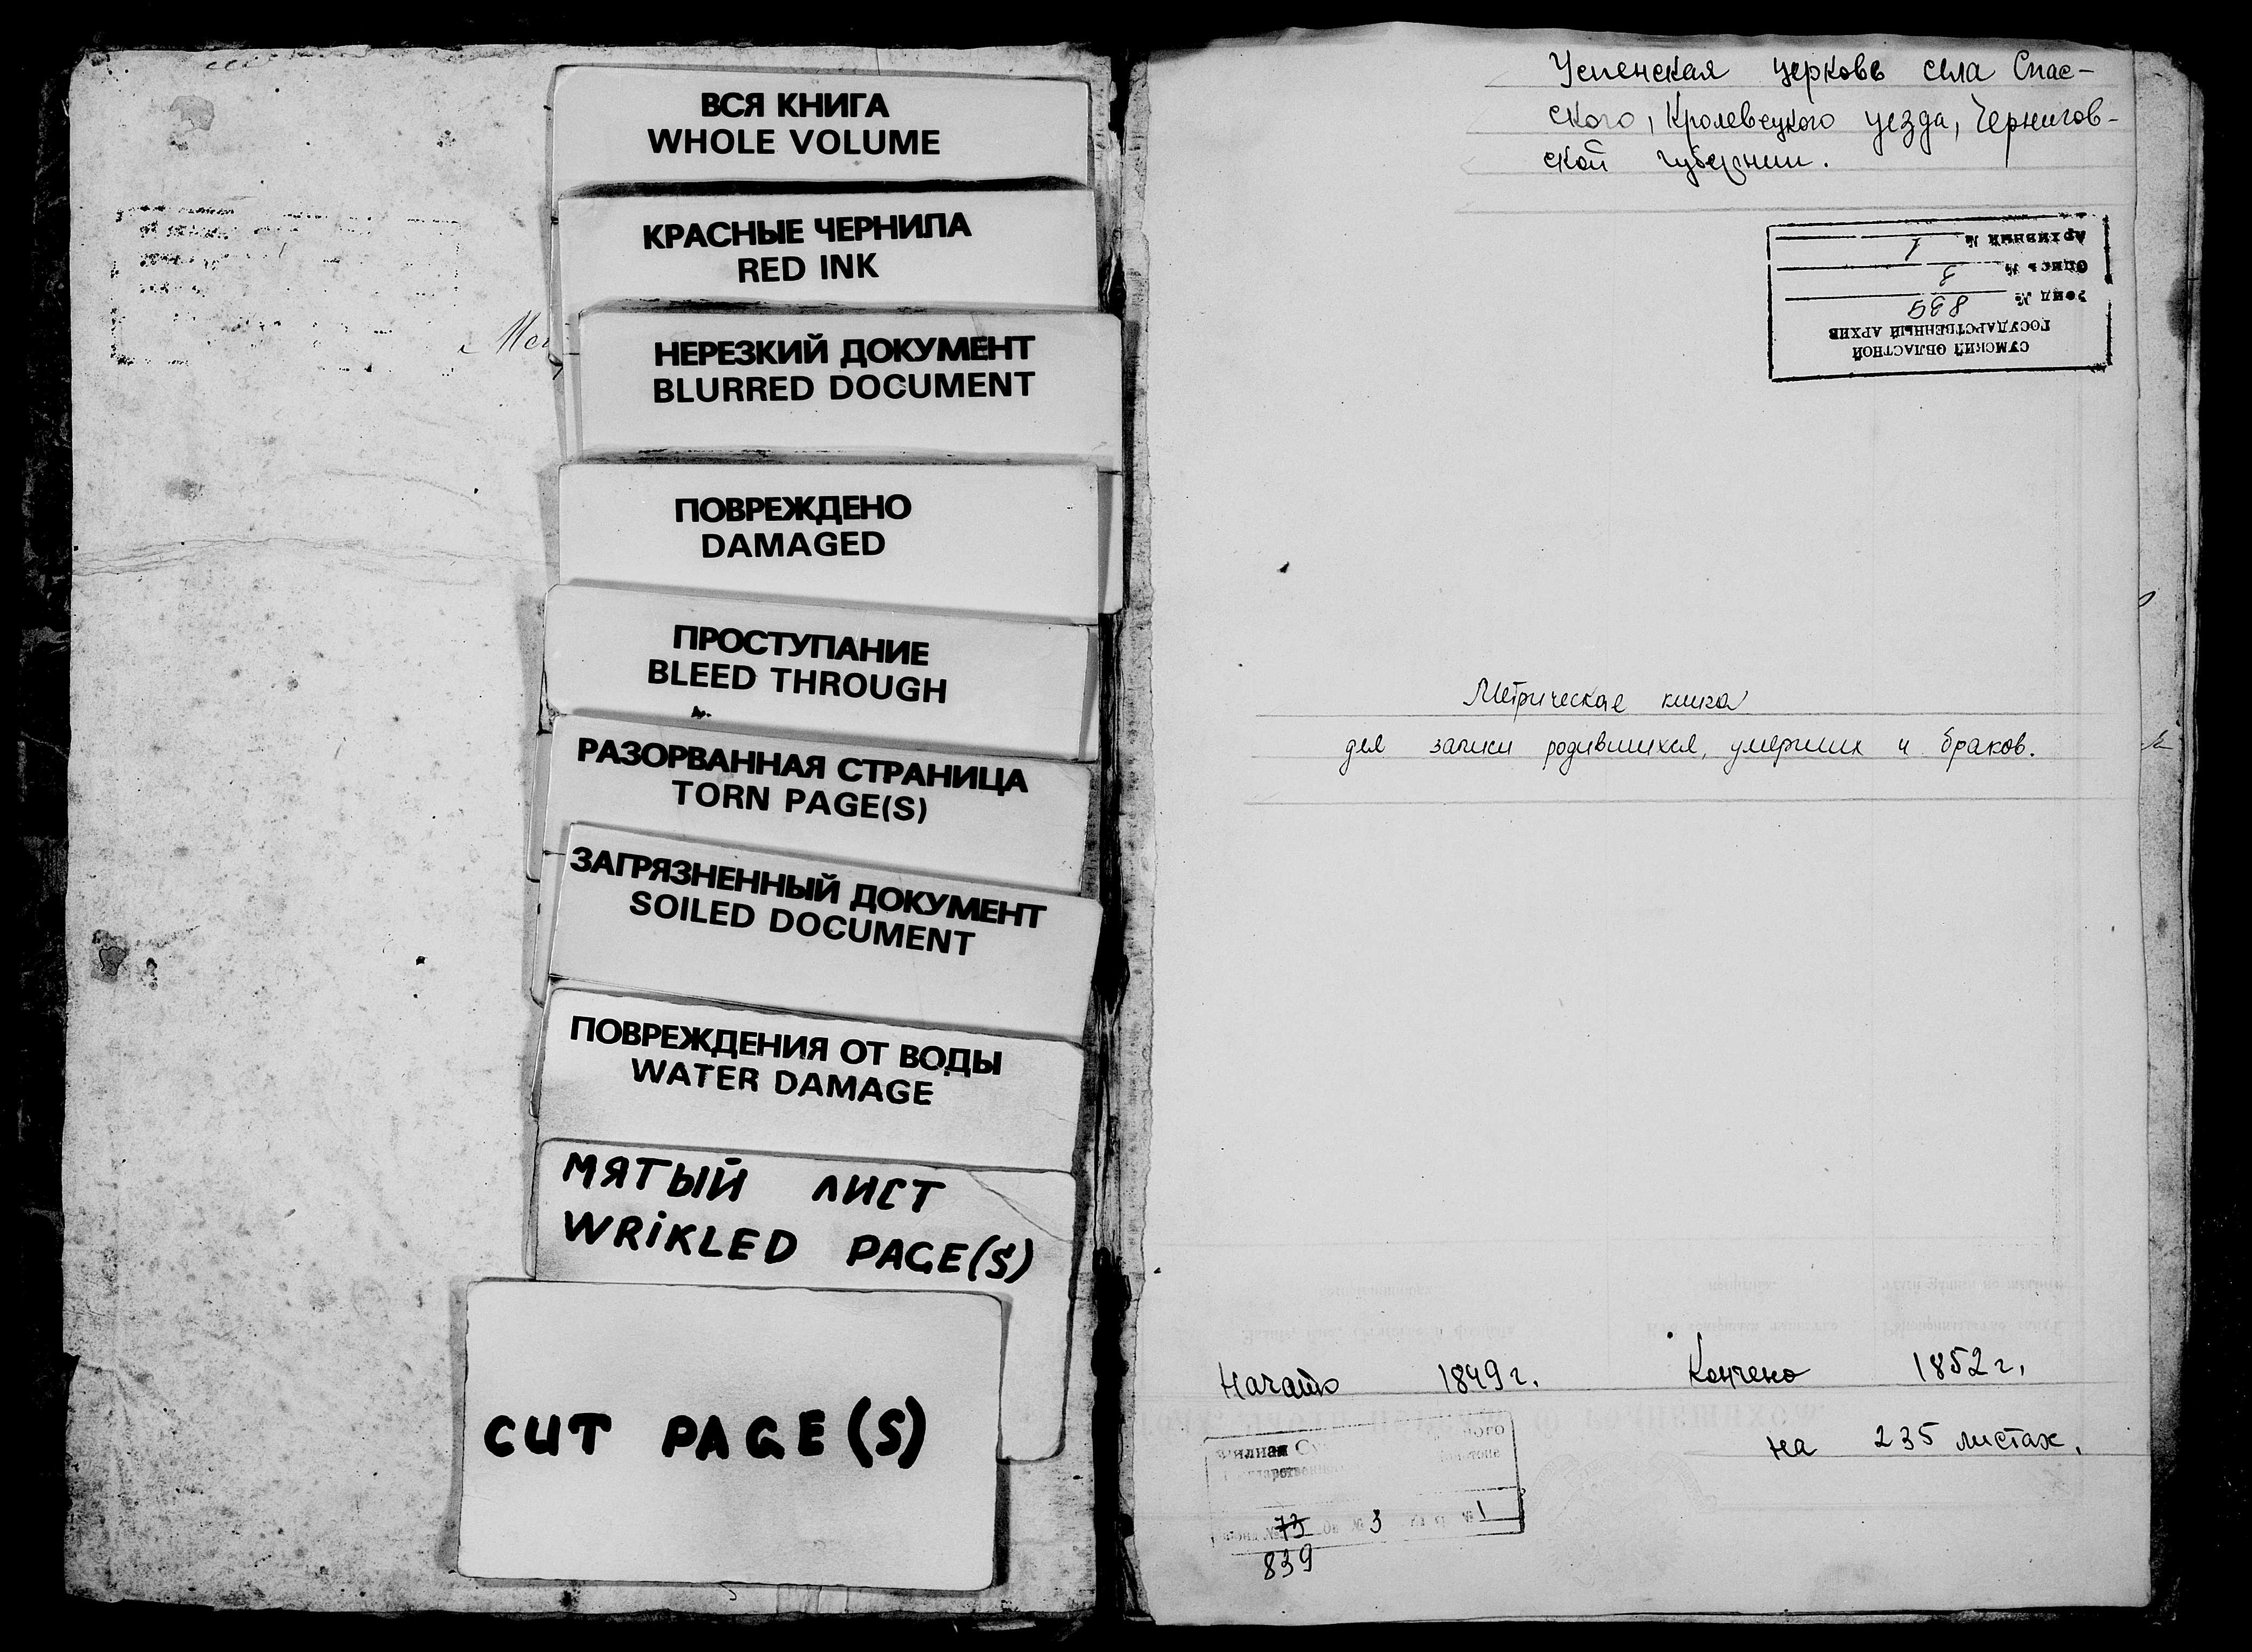 ВСЯ КНИГА
WHOLE VOLUME
КРАСНЫЕ ЧЕРНИЛА
RED INK
НЕРЕЗКИЙ ДОКУМЕНТ
BLURRED DOCUMENT
ПОВРЕЖДЕНО
DAMAGED
ПРОСТУПАНИЕ
BLEED THROUGH
РАЗОРВАННАЯ СТРАНИЦА
TORN PAGE(S)
ЗАГРЯЗНЕННЫЙ ДОКУМЕНТ
SOILED DOCUMENT
ПОВРЕЖДЕНИЯ ОТ ВОДЫ
WATER DAMAGE
МЯТЫЙ ЛИСТ
WRiKLED PAGE(S)
CUT PAGE(S)
Успенская церковь села Спас-
ского, Кролевецкого уезда, Чернигов-
ской губернии.
СУМСКИЙ ОБЛАСТНОЙ
ГОСУДАРСТВЕННЫЙ АРХИВ
Фонд № 839
Опись № 3
Архивный № 1
Метрическая книга
для записи родившихся, умерших и браков.
Начато 1849 г. Кончено 1852 г.
на 235 листах.
73 3 № 1
839